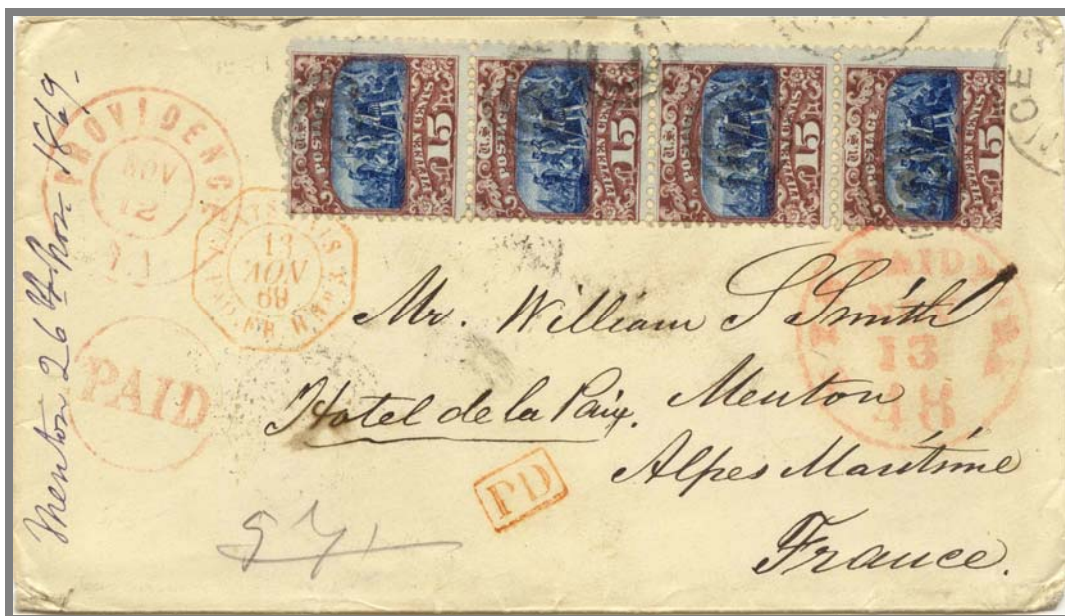 Menton 26th Nov 1869.
PROVIDENCE
NOV
12
PAID
U.S. POSTAGE
FIFTEEN CENTS
15
U.S. POSTAGE
FIFTEEN CENTS
15
U.S. POSTAGE
FIFTEEN CENTS
15
U.S. POSTAGE
FIFTEEN CENTS
15
NICE
13
NOV
69
PAID
13
48
Mr. William S Smith
Hotel de la Paix, Menton
Alpes Maritime
France.
PD